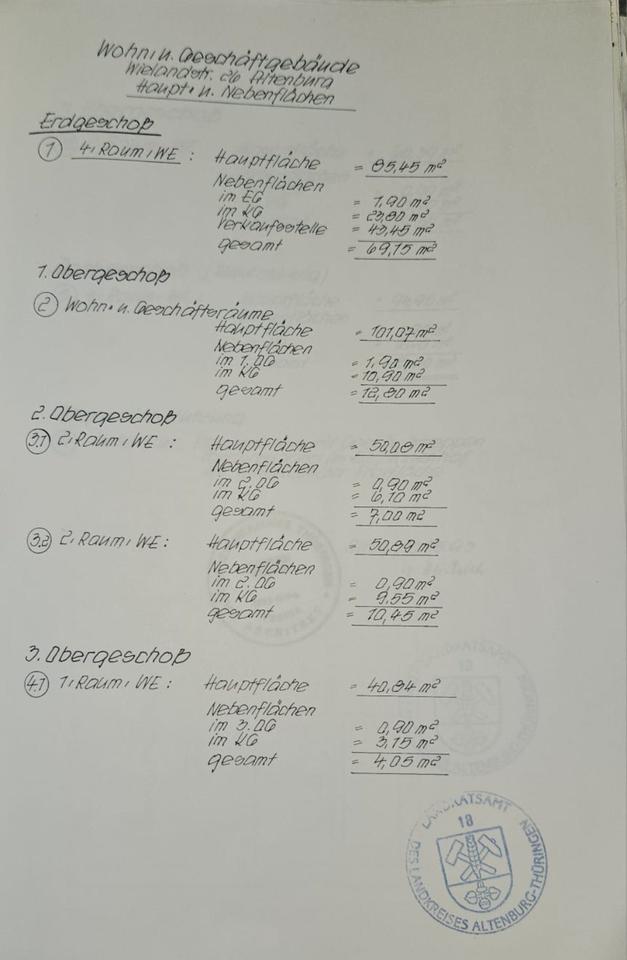 Wohn- u. Geschäftgebäude
Wielandstr. 26 Altenburg
Haupt- u. Nebenflächen
Erdgeschoß
1 4-Raum-WE : Hauptfläche = 85,45 m²
Nebenflächen
im EG = 1,90 m²
im KG = 23,80 m²
Verkaufsstelle = 43,45 m²
gesamt = 69,15 m²
1. Obergeschoß
2 Wohn- u. Geschäfteräume
Hauptfläche = 101,07 m²
Nebenflächen
im 1. OG = 1,90 m²
im KG = 10,90 m²
gesamt = 12,80 m²
2. Obergeschoß
3.1 2-Raum-WE : Hauptfläche = 50,08 m²
Nebenflächen
im 2. OG = 0,90 m²
im KG = 6,10 m²
gesamt = 7,00 m²
3.2 2-Raum-WE : Hauptfläche = 50,89 m²
Nebenflächen
im 2. OG = 0,90 m²
im KG = 9,55 m²
gesamt = 10,45 m²
3. Obergeschoß
4.1 1-Raum-WE : Hauptfläche = 40,84 m²
Nebenflächen
im 3. OG = 0,90 m²
im KG = 3,15 m²
gesamt = 4,05 m²
LANDRATSAMT
18
DES LANDKREISES ALTENBURG-THÜRINGEN